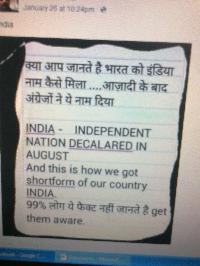 January 26 at 10:24pm
ndia
क्या आप जानते है भारत को इंडिया
नाम कैसे मिला ....आज़ादी के बाद
अंग्रेजों ने ये नाम दिया
INDIA - INDEPENDENT
NATION DECALARED IN
AUGUST
And this is how we got
shortform of our country
INDIA.
99% लोग ये फेक्ट नहीं जानते है get
them aware.